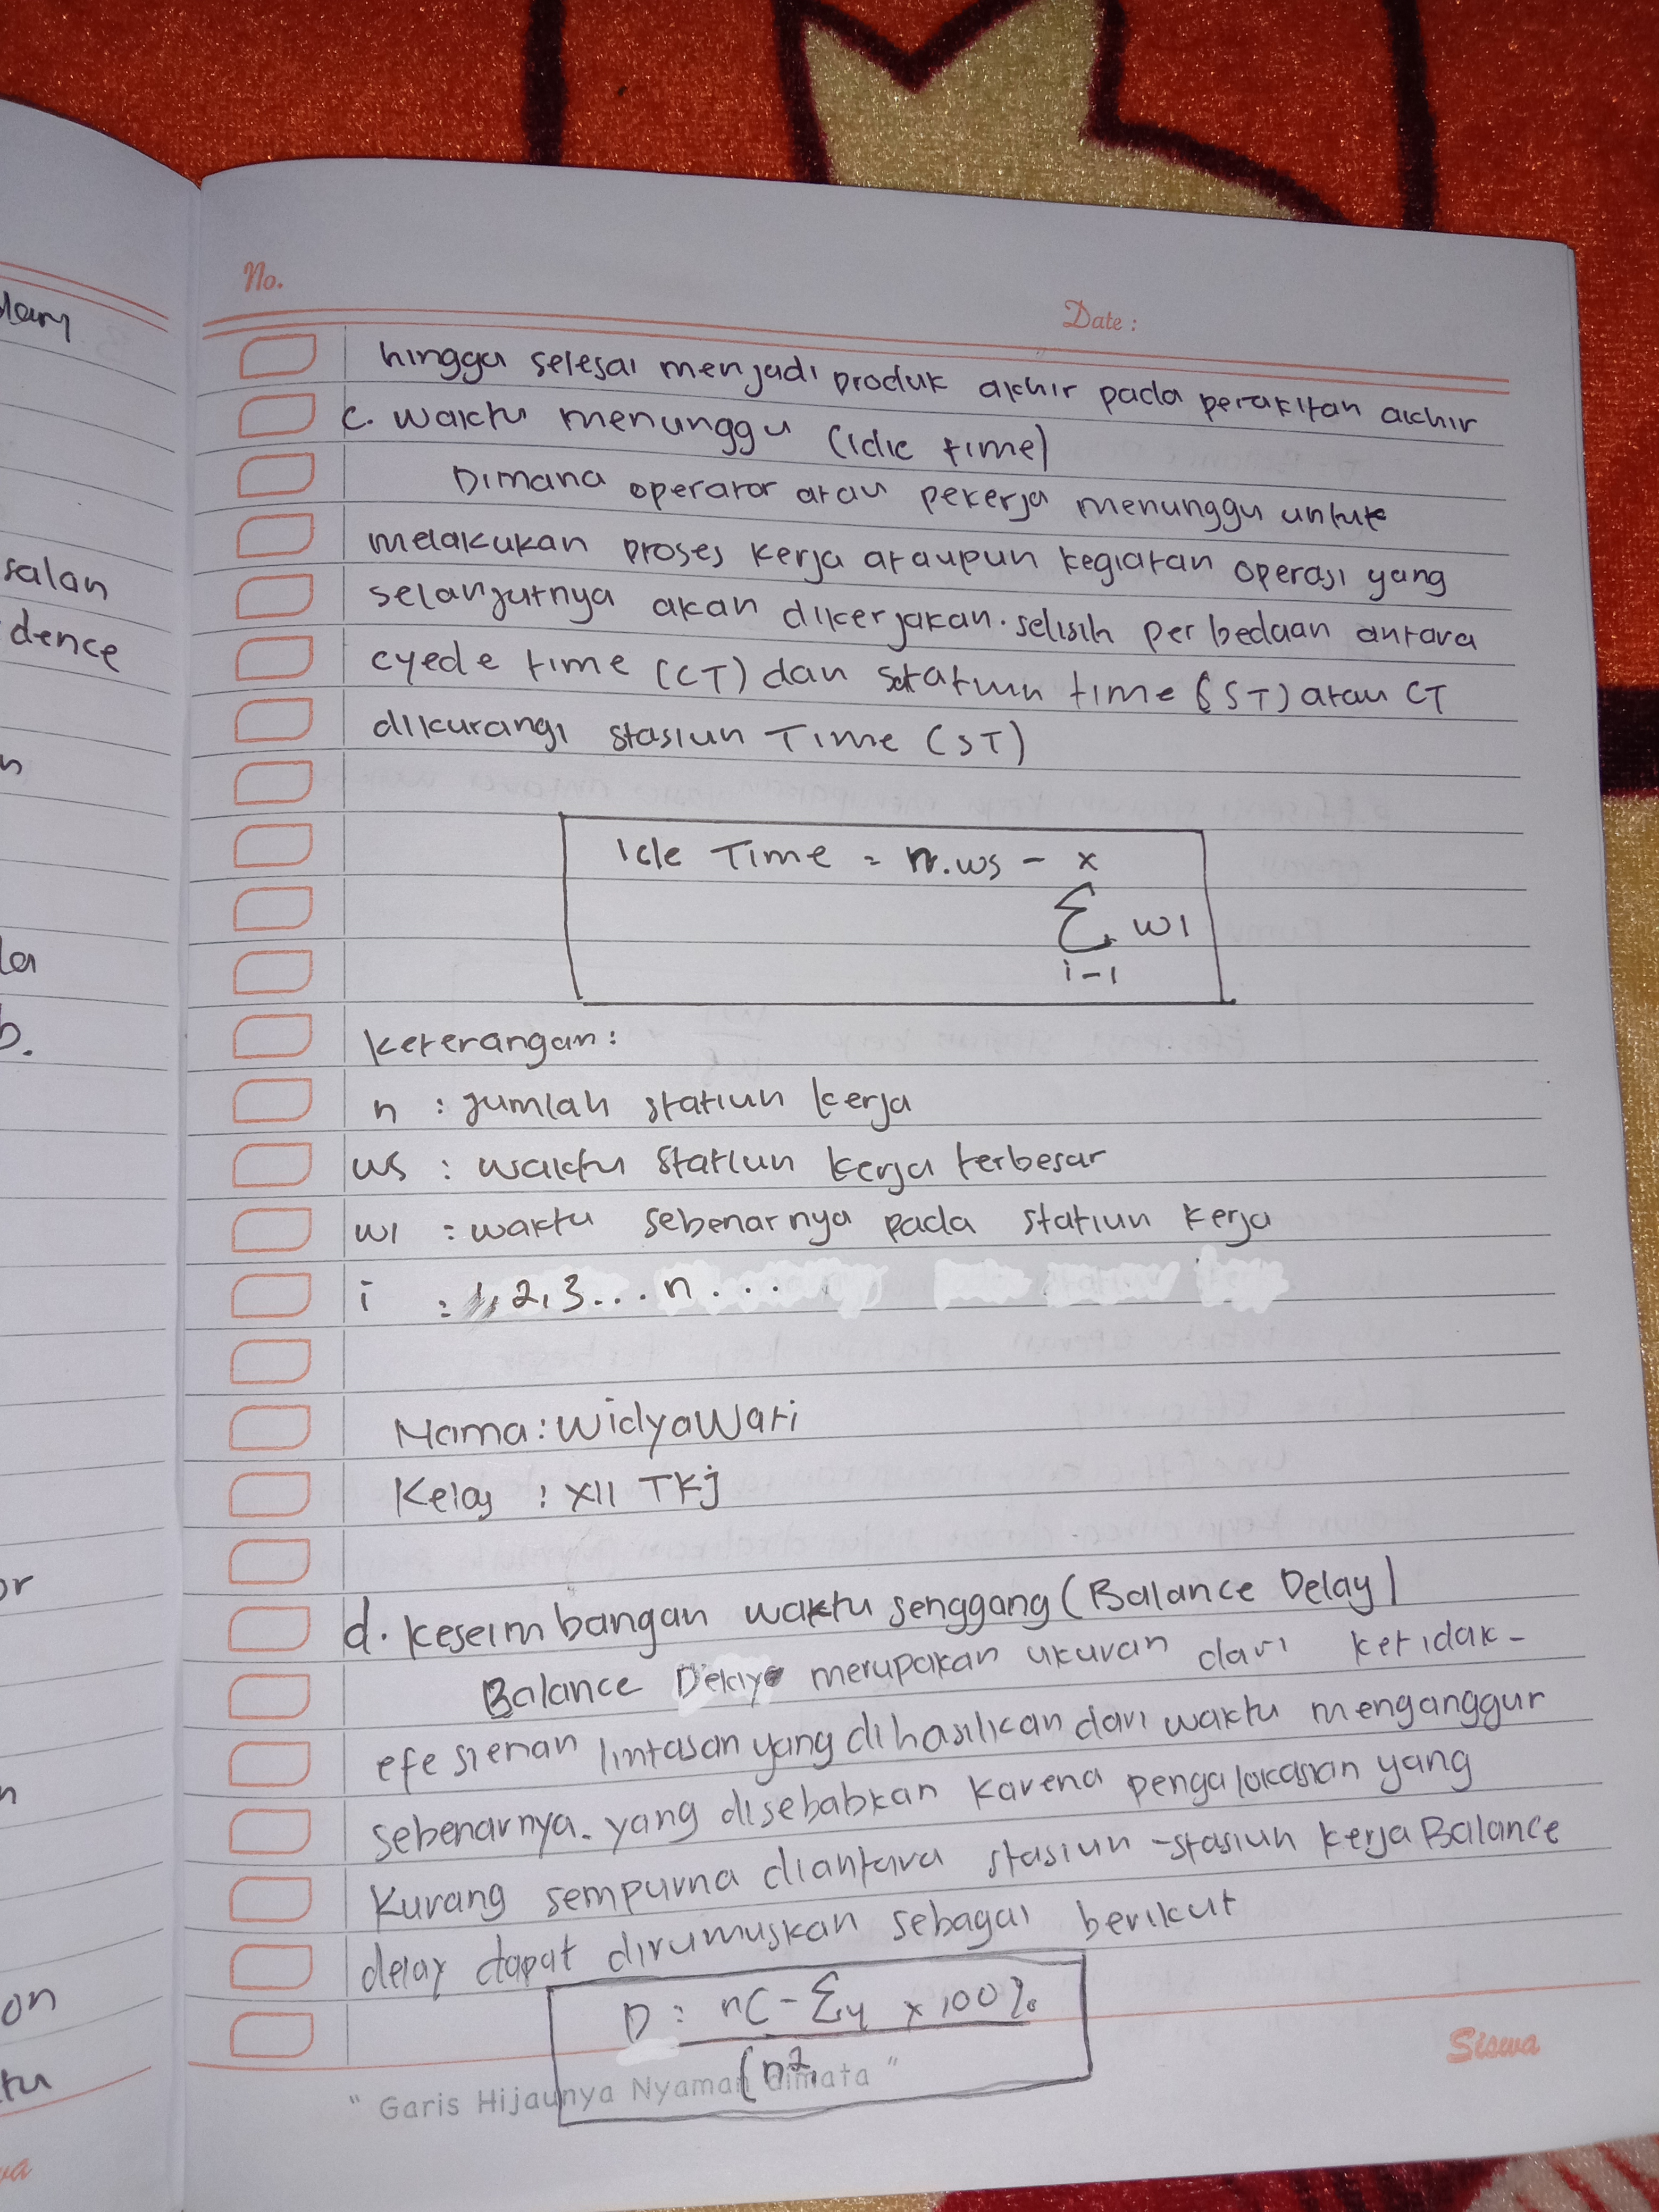 No.
Date :
hingga selesai menjadi produk akhir pada perakitan akhir
c. waktu menunggu (idle time)
Dimana operator atau pekerja menunggu untuk
melakukan proses kerja ataupun kegiatan operasi yang
selanjutnya akan dikerjakan. selisih perbedaan antara
cyede time (CT) dan statiun time (ST) atau CT
dikurangi stasiun Time (ST)
Idle Time = n.ws - x
∑ wi
i-1
keterangan:
n : jumlah statiun kerja
ws : waktu statiun kerja terbesar
wi : waktu sebenarnya pada statiun kerja
i : 1, 2, 3 ... n ...
Nama : Widyawati
Kelas : XII TKj
d. keseimbangan waktu senggang (Balance Delay)
Balance Delay merupakan ukuran dari ketidak-
efesienan lintasan yang dihasilkan dari waktu menganggur
sebenarnya. yang disebabkan karena pengalokasian yang
kurang sempurna diantara stasiun-stasiun kerja Balance
delay dapat dirumuskan sebagai berikut
D : nC - ∑ x 100%
(n²
"Garis Hijaunya Nyaman dimata"
Siswa
lary
salan
dence
n
la
b.
or
n
on
tu